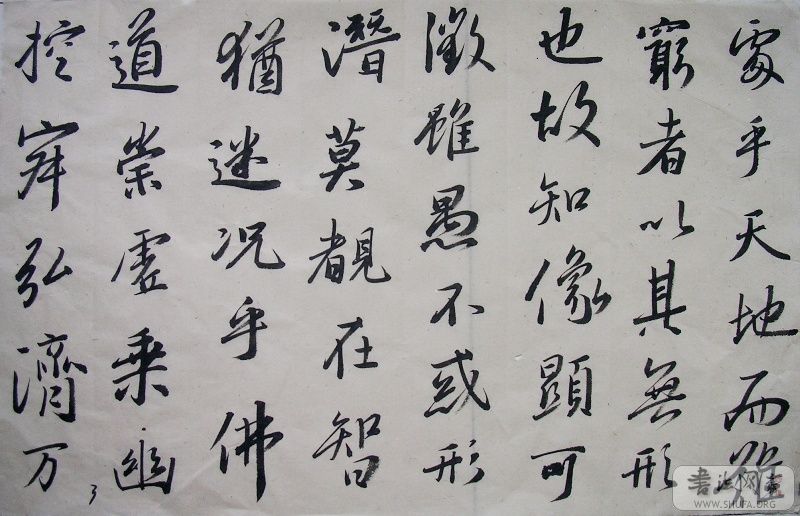 處乎天地而難
窮者以其無形
也故知像顯可
徵雖愚不惑形
潛莫覩在智
猶迷况乎佛
道崇虛乘幽
控寂弘濟万
书法网
WWW.SHUFA.ORG